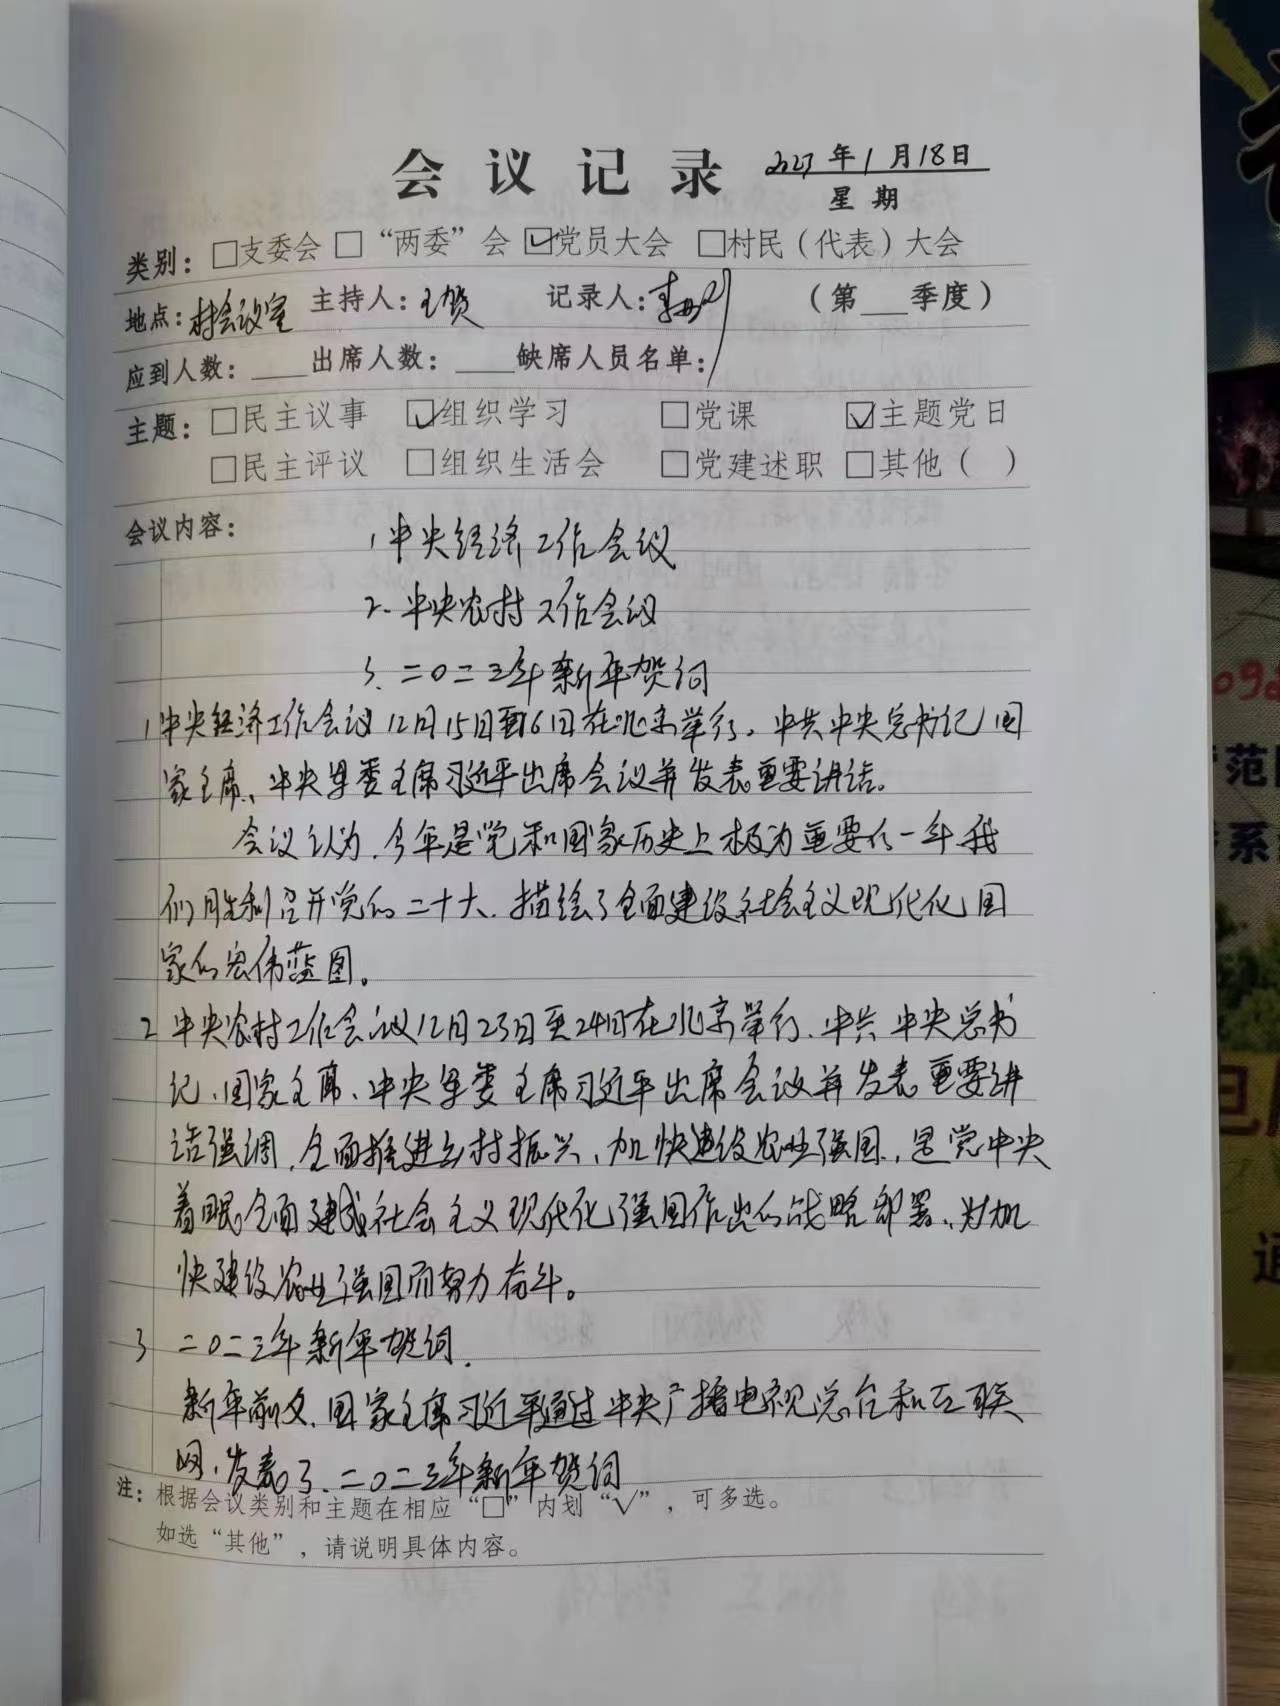 会议记录
年1月18日
星期
类别：□支委会 □“两委”会 ☑党员大会 □村民（代表）大会
地点：村会议室 主持人：王贺 记录人： （第___季度）
应到人数：____出席人数：____缺席人员名单：
主题：□民主议事 ☑组织学习 □党课 ☑主题党日
□民主评议 □组织生活会 □党建述职 □其他（ ）
会议内容：
1、中央经济工作会议
2、中央农村工作会议
3、二0二三年新年贺词
1中央经济工作会议12月15日至16日在北京举行。中共中央总书记、国
家主席、中央军委主席习近平出席会议并发表重要讲话。
会议认为，今年是党和国家历史上极为重要的一年我
们胜利召开党的二十大、描绘了全面建设社会主义现代化国
家的宏伟蓝图。
2 中央农村工作会议12月23日至24日在北京举行、中共中央总书
记、国家主席、中央军委主席习近平出席会议并发表重要讲
话强调，全面推进乡村振兴、加快建设农业强国，是党中央
着眼全面建成社会主义现代化强国作出的战略部署、为加
快建设农业强国而努力奋斗。
3 二0二三年新年贺词.
新年前夕、国家主席习近平通过中央广播电视总台和互联
网，发表了、二0二三年新年贺词
注：根据会议类别和主题在相应“□”内划“√”，可多选。
如选“其他”，请说明具体内容。
范
系